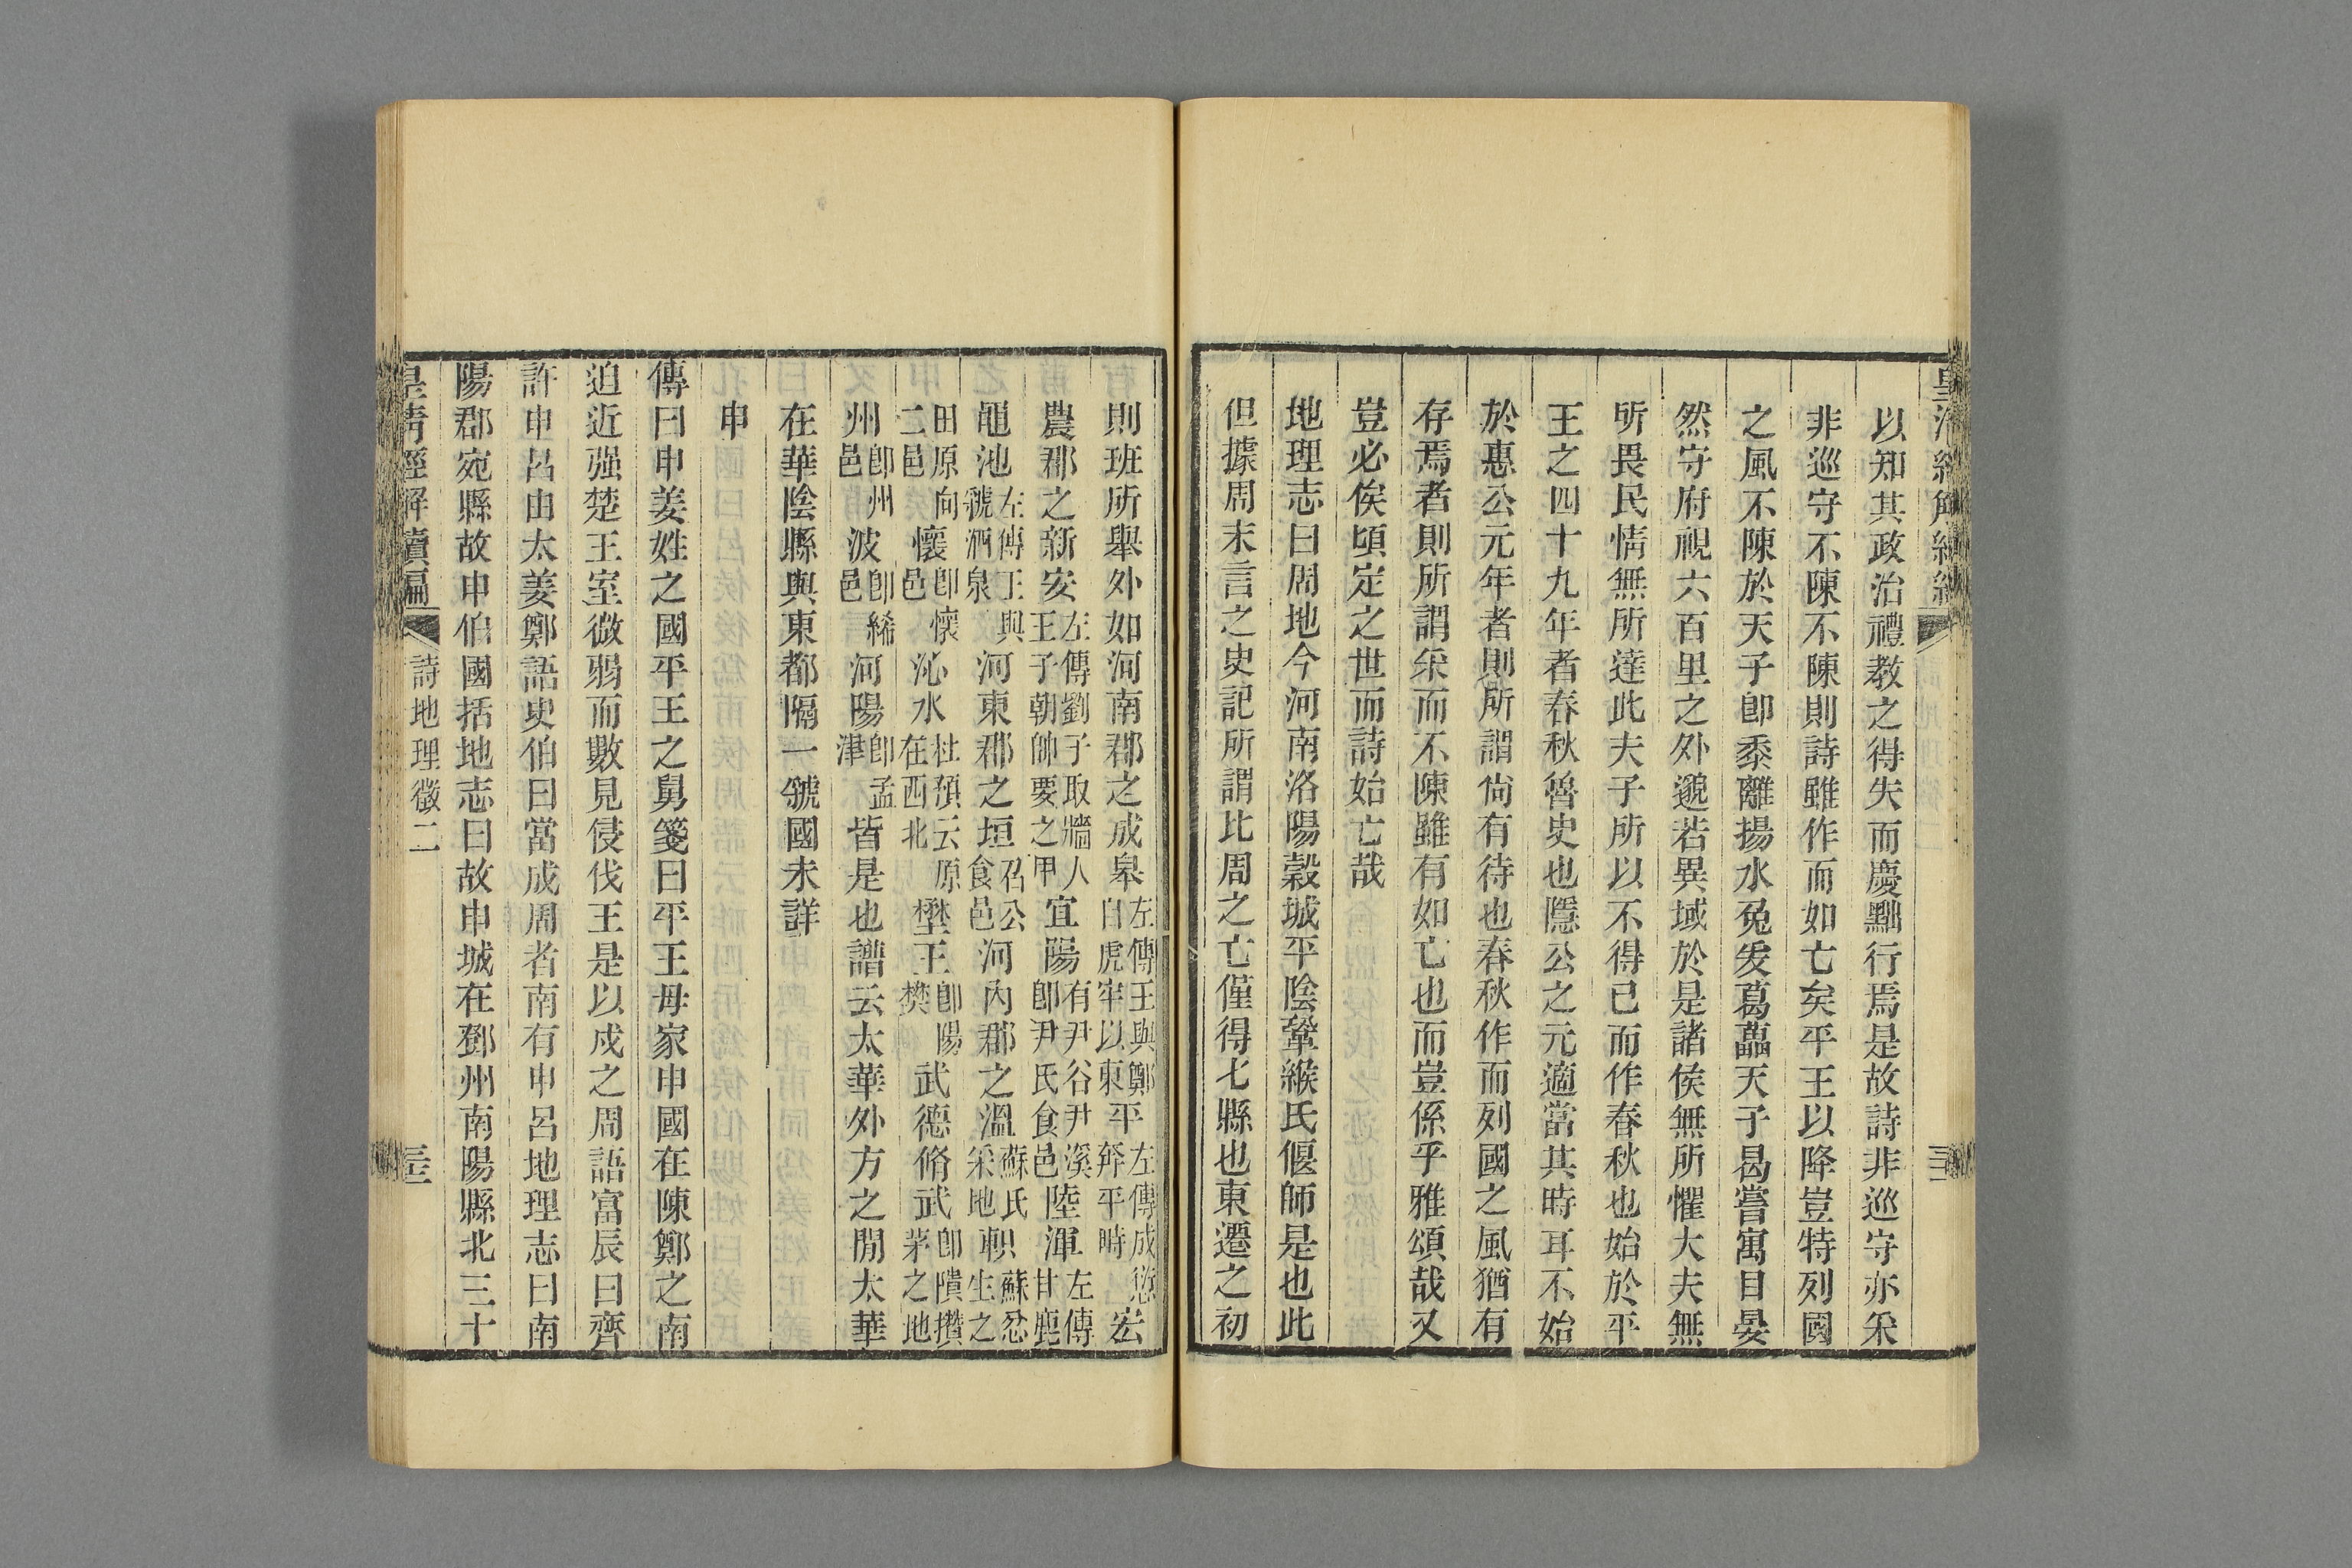 以知其政治禮教之得失而慶黜行焉是故詩非巡守亦采
非巡守不陳不陳則詩雖作而如亡矣平王以降豈特列國
之風不陳於天子卽黍離揚水兔爰葛藟天子曷嘗寓目晏
然守府視六百里之外邈若異域於是諸侯無所懼大夫無
所畏民情無所達此夫子所以不得已而作春秋也始於平
王之四十九年者春秋魯史也隱公之元適當其時耳不始
於惠公元年者則所謂尙有待也春秋作而列國之風猶有
存焉者則所謂采而不陳雖有如亡也而豈係乎雅頌哉又
豈必俟頃定之世而詩始亡哉
地理志曰周地今河南洛陽穀城平陰鞏緱氏偃師是也此
但據周末言之史記所謂比周之亡僅得七縣也東遷之初
則班所舉外如河南郡之成皋左傳王與鄭自虎牢以東平左傳成愆奔平時宏
農郡之新安左傳劉子取牆人王子朝帥要之甲宜陽有尹谷尹溪卽尹氏食邑陸渾左傳甘鹿
黽池左傳王與虢酒泉河東郡之垣召公食邑河內郡之溫蘇氏采地軹蘇忿生之
田原向二邑懷卽懷邑沁水杜預云原在西北壄王卽陽樊武德脩武卽隤攢茅之地
州卽州邑波卽絺邑河陽卽孟津皆是也譜云太華外方之閒太華
在華陰縣與東都隔一虢國未詳
申
傳曰申姜姓之國平王之舅箋曰平王母家申國在陳鄭之南
迫近强楚王室微弱而數見侵伐王是以戍之周語富辰曰齊
許申呂由太姜鄭語史伯曰當成周者南有申呂地理志曰南
陽郡宛縣故申伯國括地志曰故申城在鄧州南陽縣北三十
皇淸經解續編 詩地理徵二